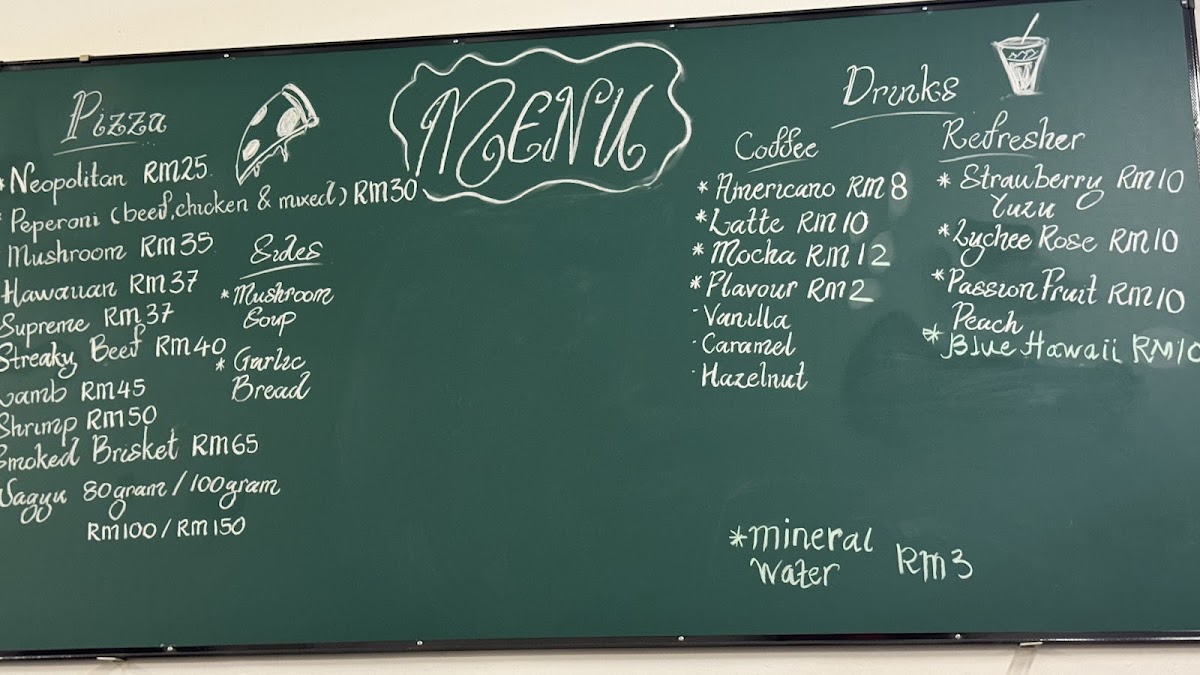 MENU
Pizza
* Neopolitan RM25
* Peperoni (beef, chicken & mixed) RM30
Mushroom RM35
Hawaiian RM37
Supreme RM37
Streaky Beef RM40
Lamb RM45
Shrimp RM50
Smoked Brisket RM65
Wagyu 80gram / 100gram
RM100 / RM150
Sides
* Mushroom
Soup
* Garlic
Bread
Drinks
Coffee
* Americano RM 8
* Latte RM 10
* Mocha RM 12
* Flavour RM 2
· Vanilla
· Caramel
· Hazelnut
Refresher
* Strawberry RM10
Yuzu
* Lychee Rose RM10
* Passion Fruit RM10
Peach
* Blue Hawaii RM10
* Mineral
Water RM3